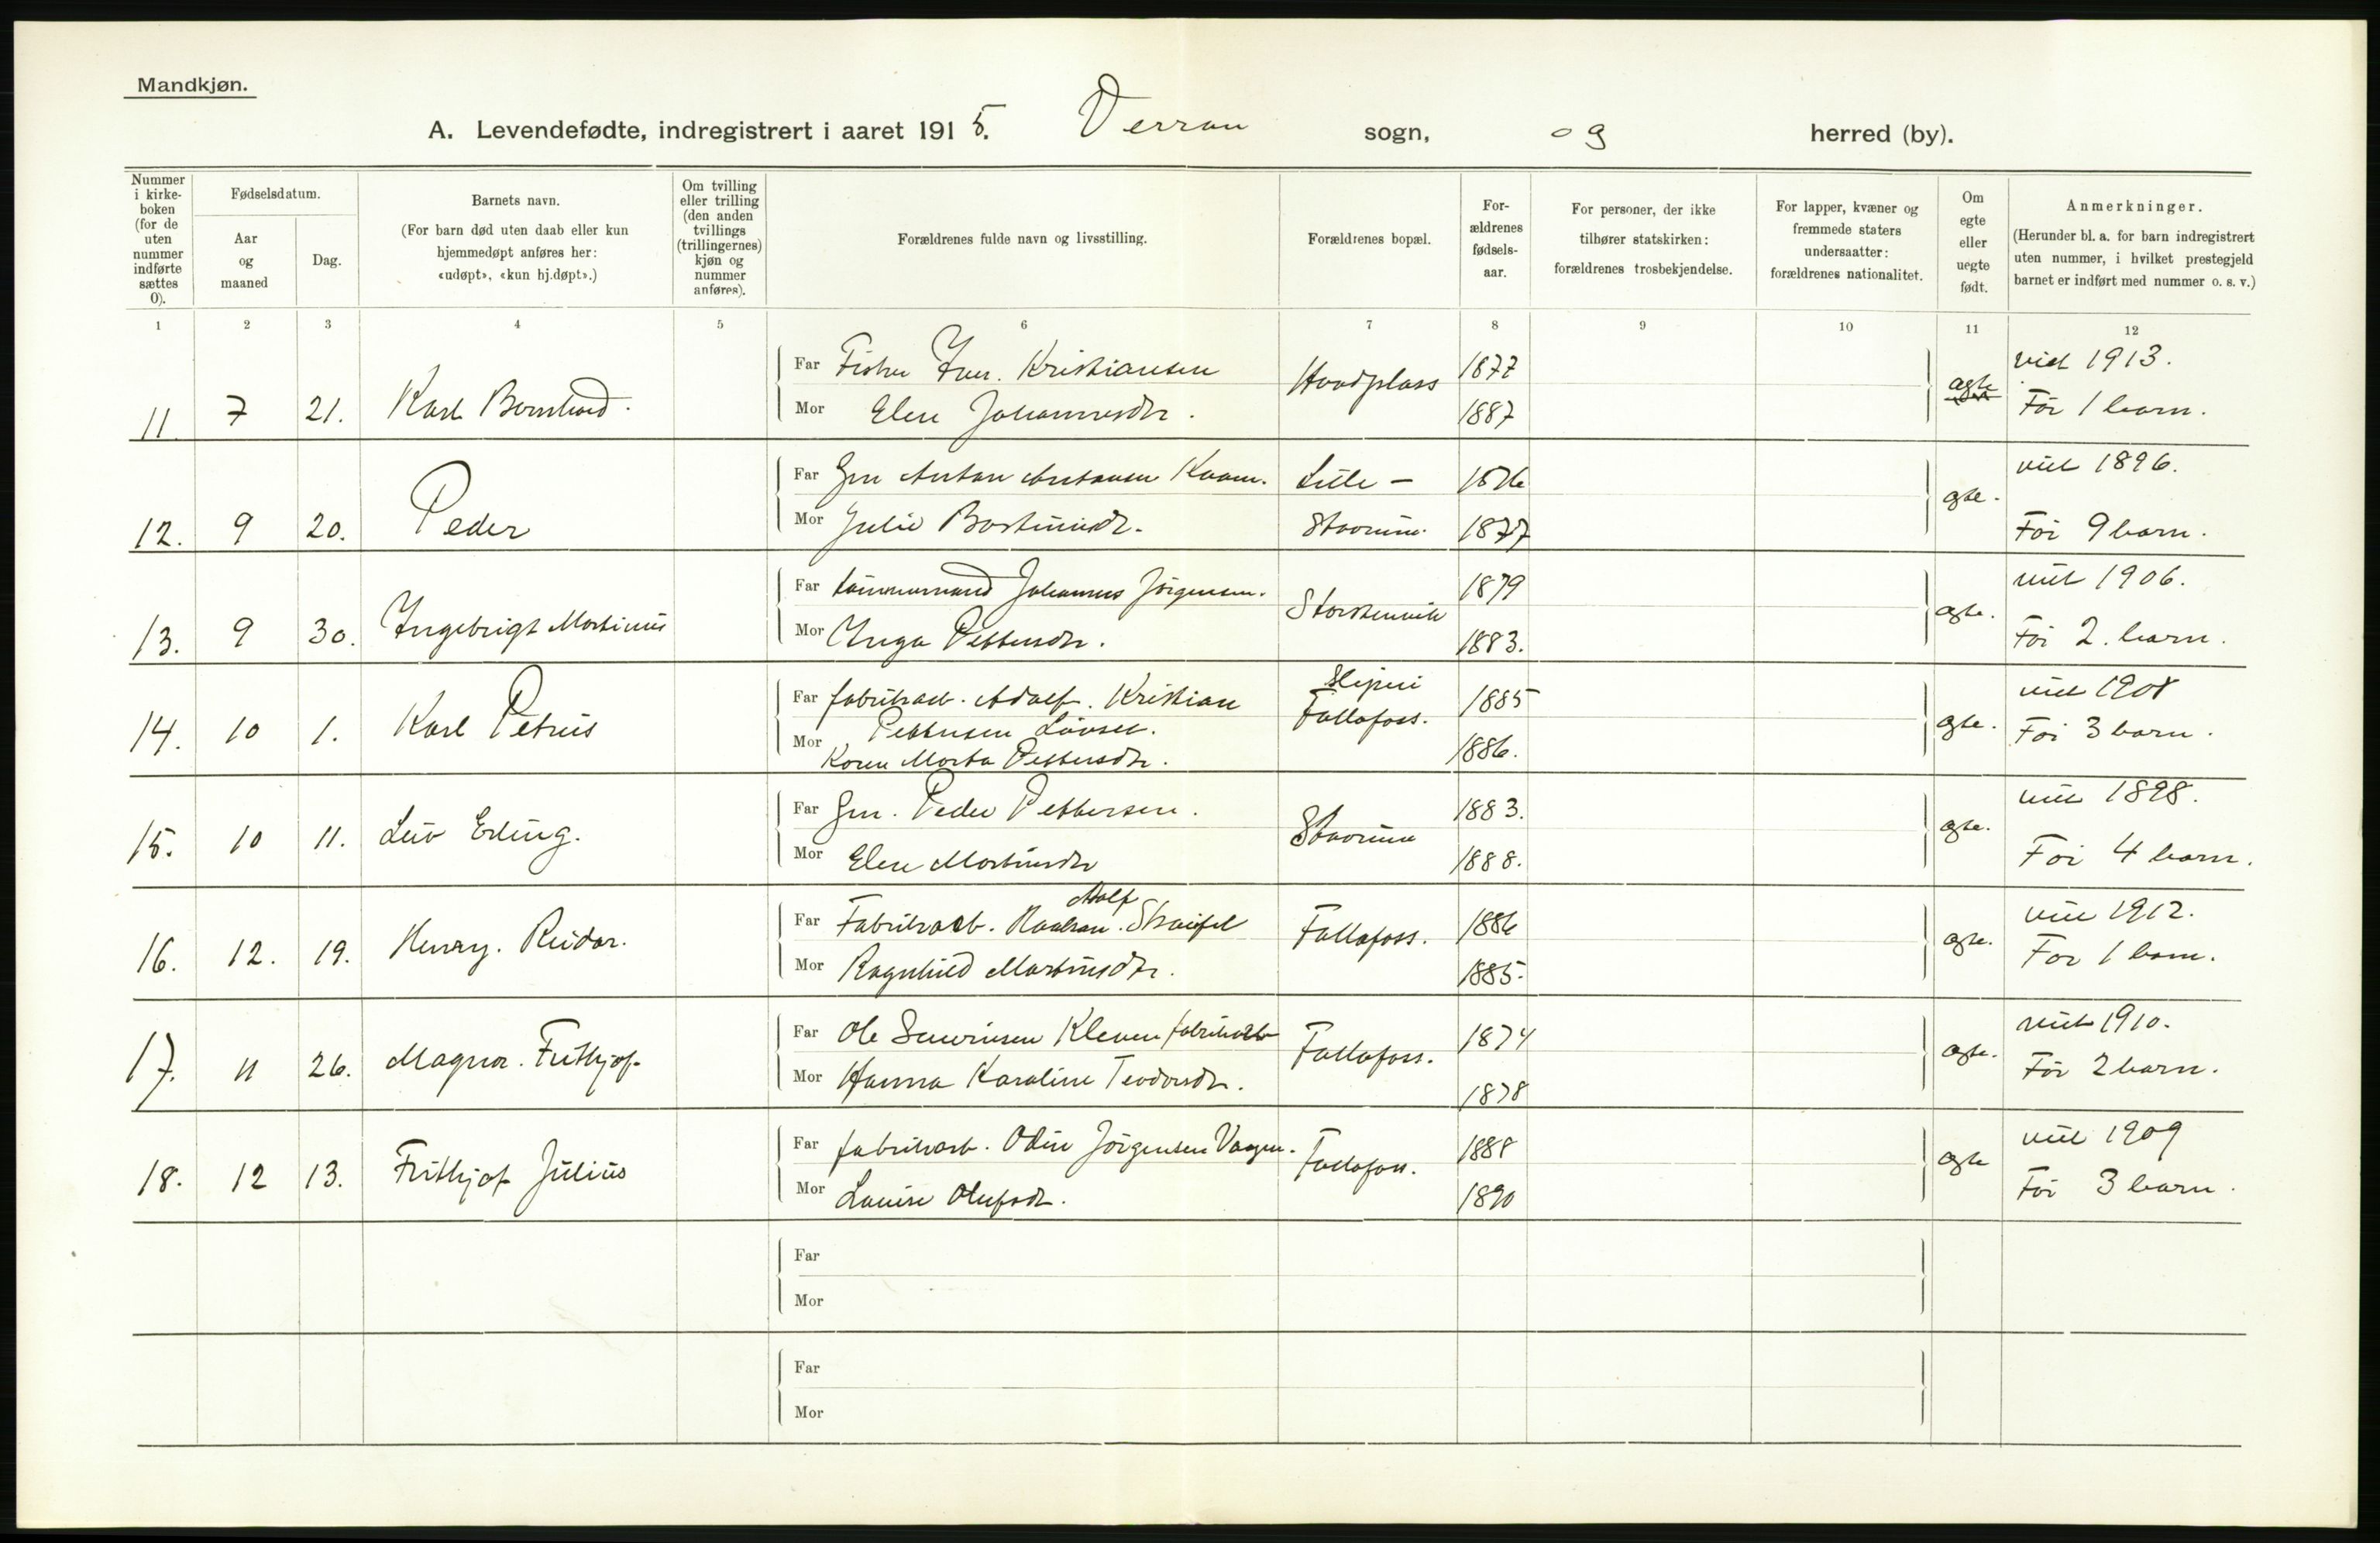 Mandkjøn.
A. Levendefødte, indregistrert i aaret 1915. Verran sogn, og herred (by).
Nummer i kirke-boken (for de uten nummer indførte sættes 0).
Fødselsdatum.
Aar og maaned
Dag.
Barnets navn.
(For barn død uten daab eller kun hjemmedøpt anføres her: «udøpt», «kun hj.døpt».)
Om tvilling eller trilling (den anden tvillings (trillingernes) kjøn og nummer anføres).
Forældrenes fulde navn og livsstilling.
Forældrenes bopæl.
For-ældrenes fødsels-aar.
For personer, der ikke tilhører statskirken: forældrenes trosbekjendelse.
For lapper, kvæner og fremmede staters undersaatter: forældrenes nationalitet.
Om egte eller uegte født.
Anmerkninger.
(Herunder bl. a. for barn indregistrert uten nummer, i hvilket prestegjeld barnet er indført med nummer o. s. v.)
1 2 3 4 5 6 7 8 9 10 11 12
Far Fisker Iver Kristiansen 1877 viet 1913.
11 7 21. Karl Bernhard. ægte
Mor Elen Johannesdtr. 1887 Før 1 barn.
Far Gm Anton Antonsen Kvam. Lille - viet 1896.
12. 9 20. Peder ægte.
Mor Julie 1877 Før 9 barn.
Far Johannes Jørgensen. 1879 viet 1906.
13. 9 30. Ingebrigt Martinus ægte.
Mor Inga Pettersdtr. 1883. Før 2. barn.
Far fabrikarb. Adolf Kristian Follafoss. 1885 viet 1908
14. 10 1. Karl Petrus Pettersen ægte.
Mor Karen Marta Pettersdtr. 1886. Før 3 barn.
Far Gm. Peder Pettersen. 1883. viet 1898.
15. 10 11. Leiv Erling. ægte.
Mor Elen Martinsdtr 1888. Før 4 barn.
Adolf
Far Fabrikarb. Follafoss. 1886 viet 1912.
16. 12. 19. Henry. Reidar. ægte.
Mor Ragnhild Martinsdtr. 1885. Før 1 barn.
Far Ole Severinsen Kleven fabrikarb Follafoss. 1874 viet 1910.
17. 11 26. Magnor. Frithjof ægte.
Mor Hanna Karoline Teodorsdtr. 1878 Før 2 barn.
Far fabrikarb. Odin Jørgensen Vaagen. Follafoss. 1888 viet 1909
18. 12 13. Frithjof Julius ægte
Mor Louise Olufsdtr. 1890 Før 3 barn.
Far
Mor
Far
Mor